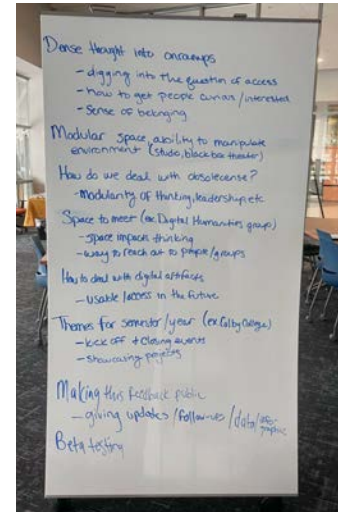 Dense thought into onramps
- digging into the question of access
- how to get people curious/interested
- Sense of belonging
Modular space, ability to manipulate
environment (studio, black box theater)
How do we deal with obsolecense?
- Modularity of thinking, leadership, etc
Space to meet (ex Digital Humanities group)
- space impacts thinking
- way to reach out to people/groups
How to deal with digital artifacts
- usable/access in the future
Themes for semester/year (ex Colby College)
- kick off + closing events
- showcasing projects
Making this feedback public
- giving updates/follow-ups/data/info-
graphic
Beta testing